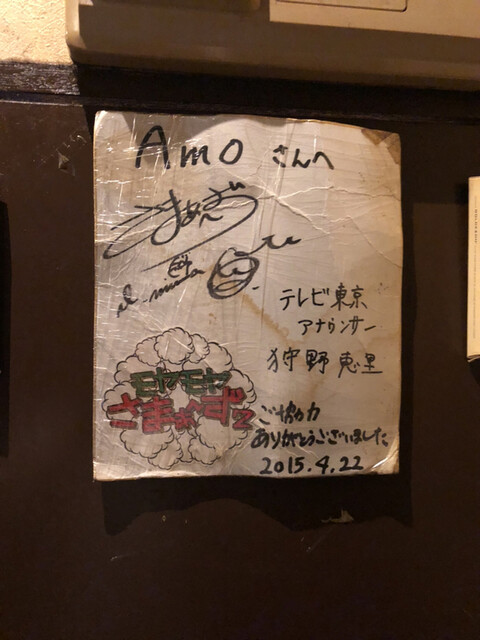 Amoさんへ
さまぁ〜ず
テレビ東京
アナウンサー
狩野恵里
モヤモヤ
さまぁ〜ず2
ご協力
ありがとうございました
2015.4.22